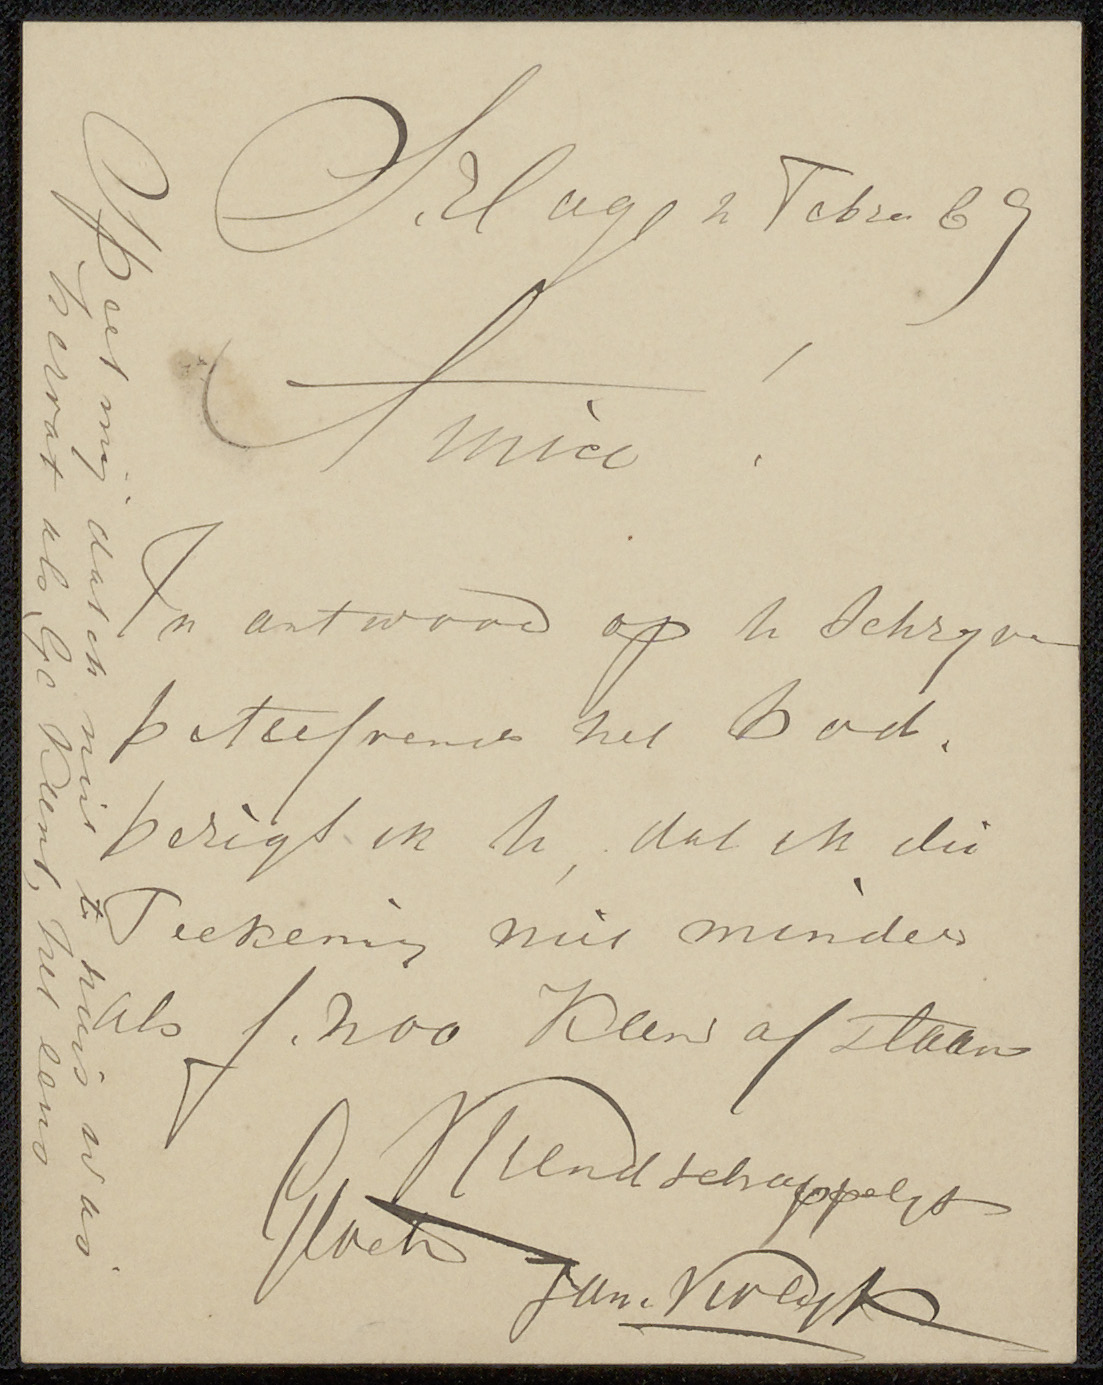 S. Hage 2 Febru 69
Amice!
In antwoord op U schryven
betreffende het bod,
berigt ik U, dat ik die
Teekening niet minder
als f. 200 Kan afstaan
Vriendschappelyk
Gegroet
Jan Vrolyk
Speet mij dat ik niet te huis was
hervat als Ge Kunt, het eens